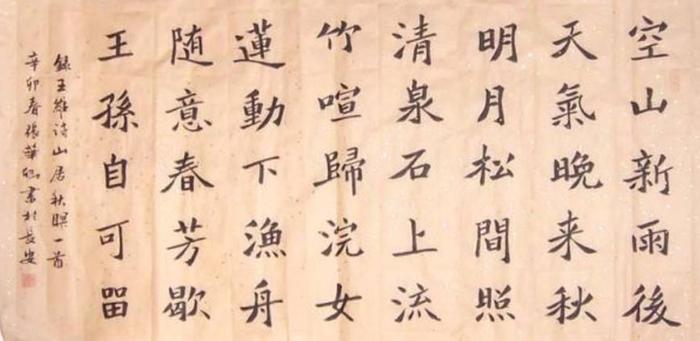 空山新雨後
天氣晚来秋
明月松間照
清泉石上流
竹喧歸浣女
蓮動下漁舟
随意春芳歇
王孫自可留
録王維詩山居秋暝一首
辛卯春張華書於長安